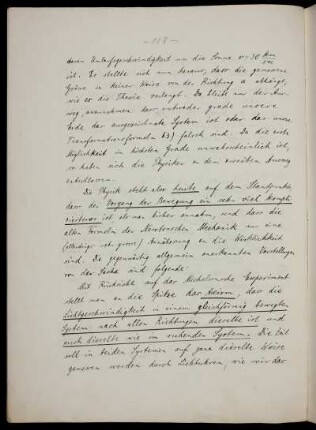 - 118 -
deren Umlaufgeschwindigkeit um die Sonne v = 30 km/sec
ist. Es stellte sich nun heraus, dass die gemessene
Grösse in keiner Weise von der Richtung α abhängt,
wie es die Theorie verlangt. Es bleibt nur der Aus-
weg, anzunehmen dass entweder grade unsere
Erde das ausgezeichnete System ist oder das unsere
Transformationsformeln 63) falsch sind. Da die erste
Möglichkeit im höchsten Grade unwahrscheinlich ist,
so haben sich die Physiker zu dem zweiten Ausweg
entschlossen.
Die Physik steht also heute auf dem Standpunkte,
dass der Vorgang der Bewegung ein sehr viel kompli-
zierterer ist als man bisher annahm, und dass die
alten Formeln der Newtonschen Mechanik nur eine
(allerdings sehr grosse) Annäherung an die Wirklichkeit
sind. Die gegenwärtig allgemein anerkannten Vorstellungen
von der Sache sind folgende:
Mit Rücksicht auf das Michelsonsche Experiment
stellt man an die Spitze das Axiom, dass die
Lichtgeschwindigkeit in einem gleichförmig bewegten
System nach allen Richtungen dieselbe ist und
auch dieselbe wie im ruhenden System. Die Zeit
soll in beiden Systemen auf ganz dieselbe Weise
gemessen werden durch Lichtuhren, wie wir das